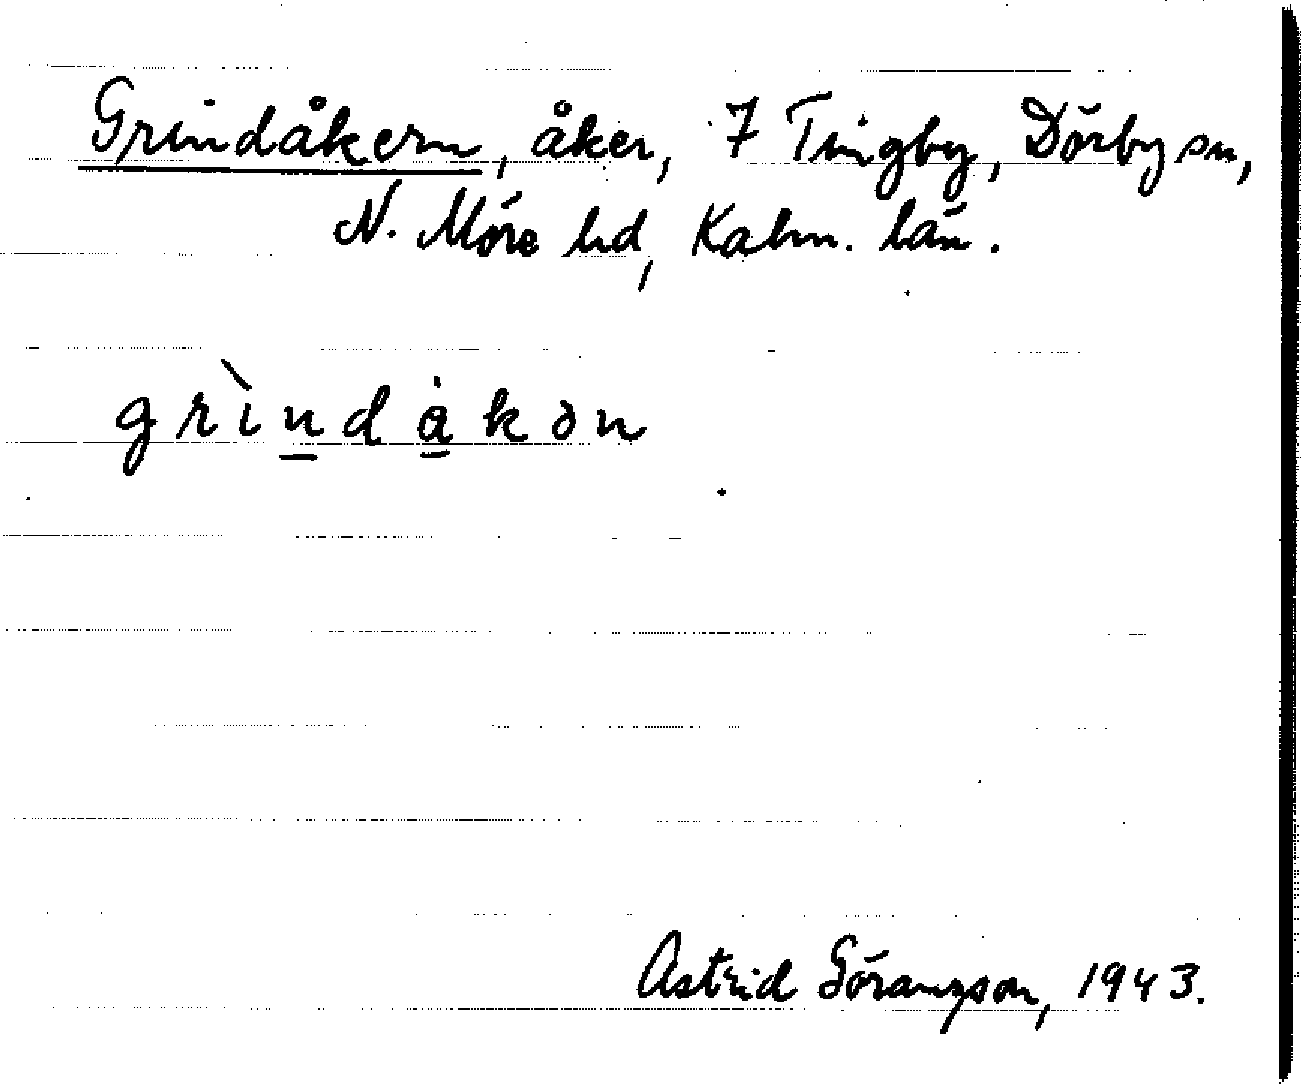 Grindåkern, åker, 7 Tingby, Dörby sn,
N. Möre hd, Kalm. län.
grìndåkən
Astrid Göranzson, 1943.